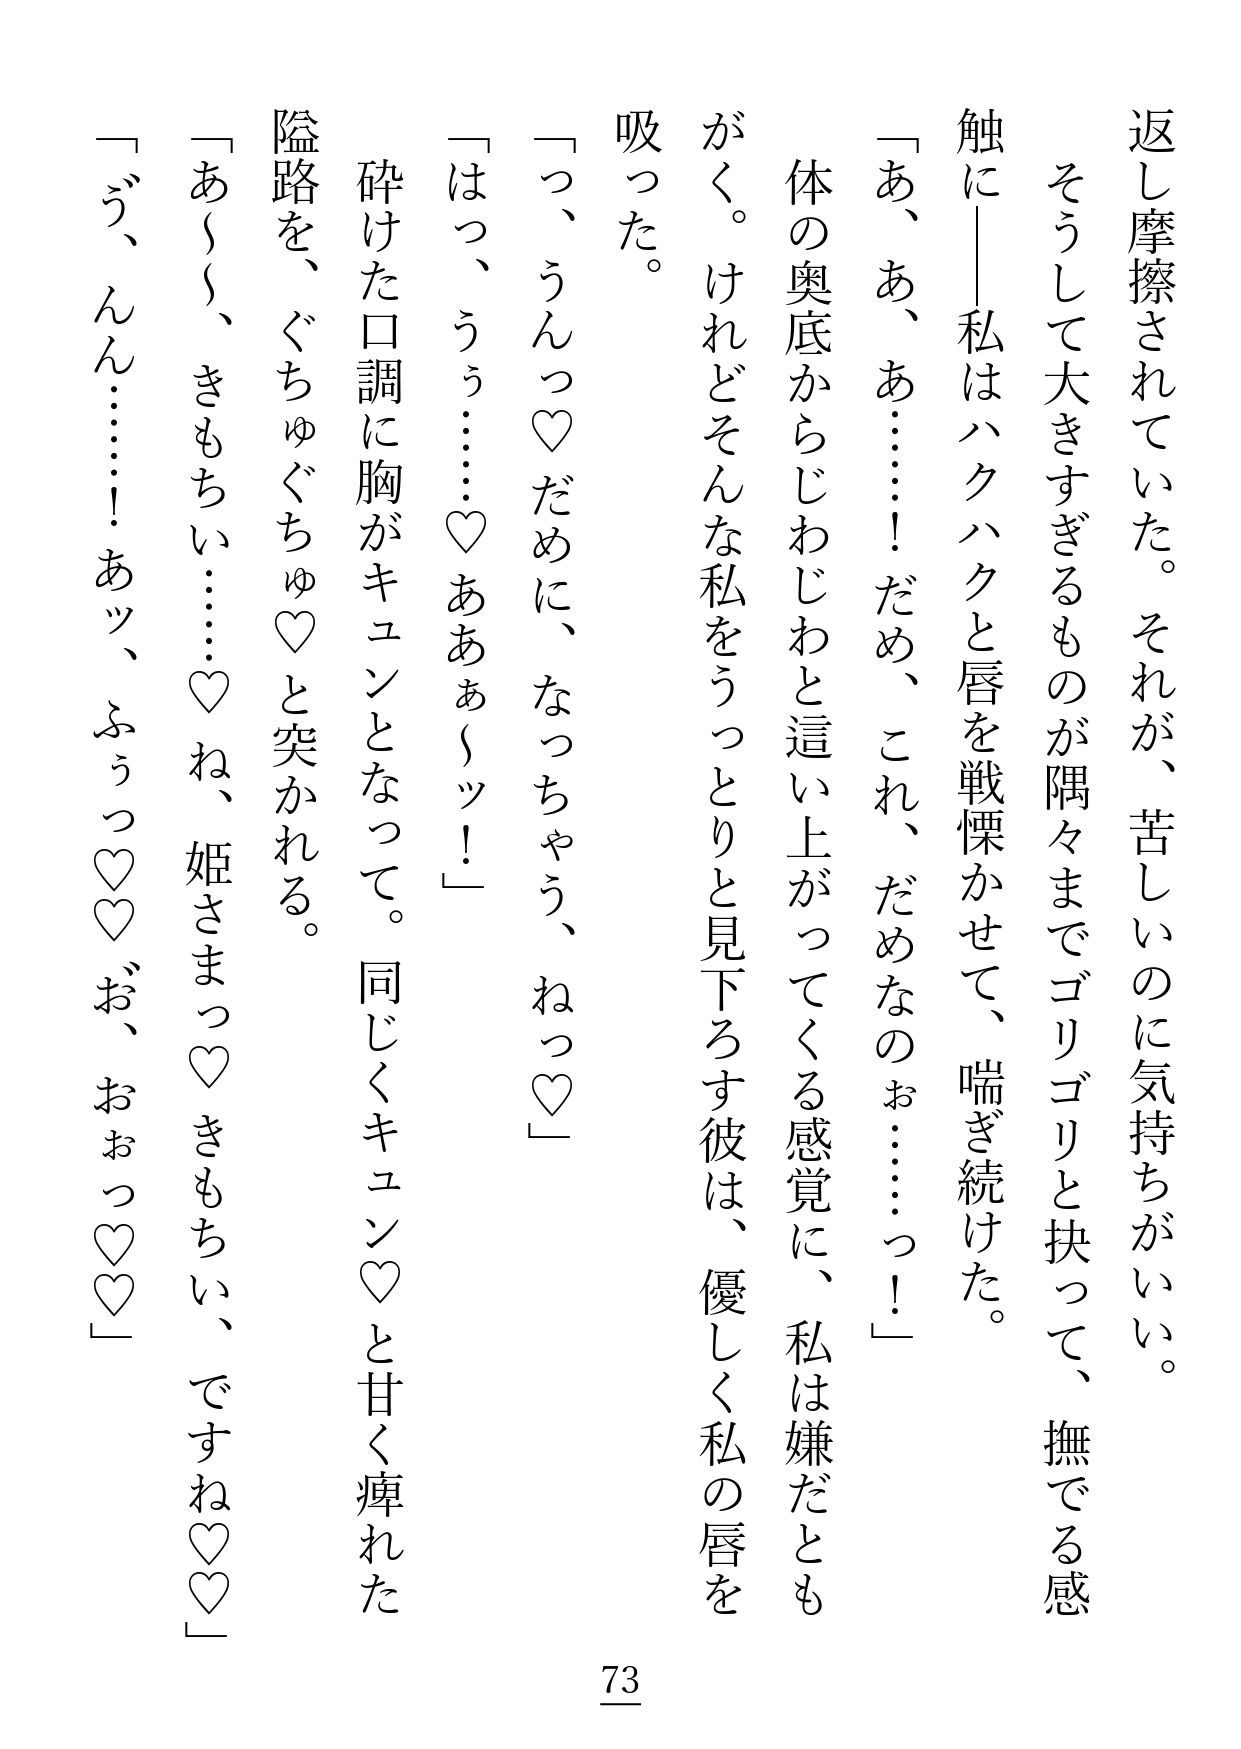 返し摩擦されていた。それが、苦しいのに気持ちがいい。
そうして大きすぎるものが隅々までゴリゴリと抉って、撫でる感
触に――私はハクハクと唇を戦慄かせて、喘ぎ続けた。
「あ、あ、あ……！だめ、これ、だめなのぉ……っ！」
体の奥底からじわじわと這い上がってくる感覚に、私は嫌だとも
がく。けれどそんな私をうっとりと見下ろす彼は、優しく私の唇を
吸った。
「っ、うんっ♡だめに、なっちゃう、ねっ♡」
「はっ、うぅ……♡ああぁ～ッ！」
砕けた口調に胸がキュンとなって。同じくキュン♡と甘く痺れた
隘路を、ぐちゅぐちゅ♡と突かれる。
「あ～～、きもちい……♡ね、姫さまっ♡きもちい、ですね♡♡」
「ゔ、んん……！あッ、ふぅっ♡♡お゛、おぉっ♡♡」
73